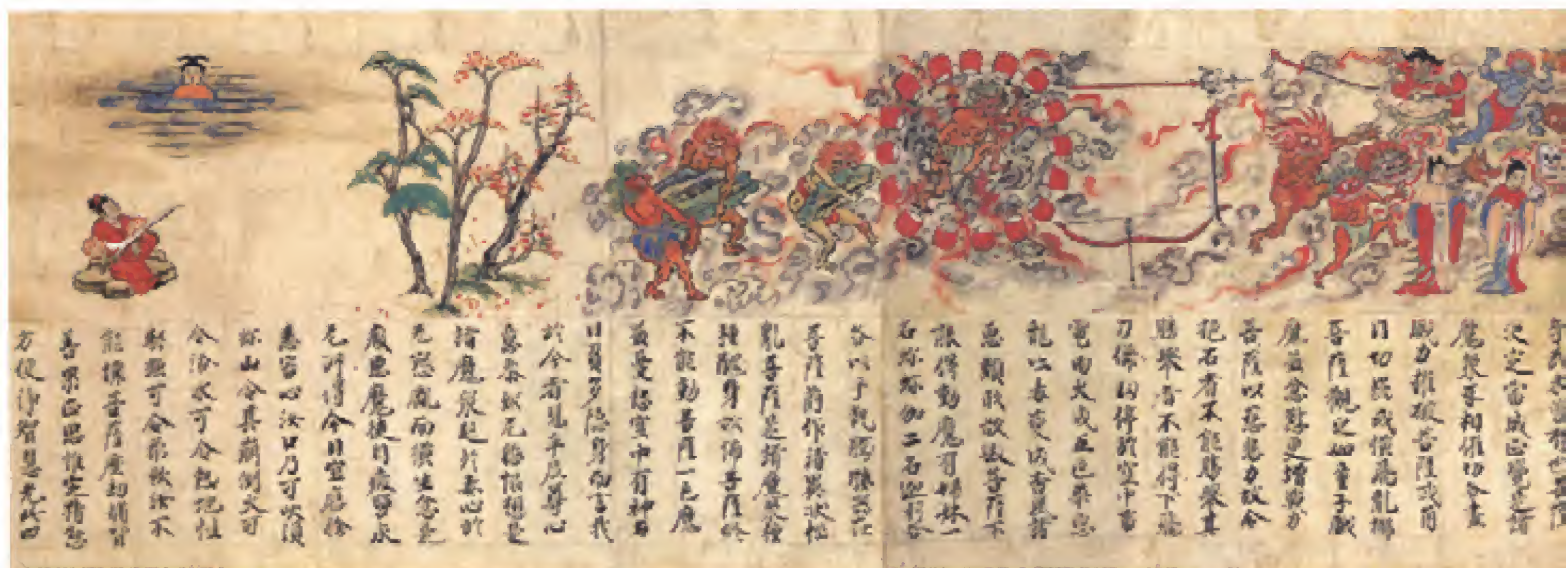 決定當成正覺是諸
魔衆互相催切各盡
威力摧破菩薩或角
目切齒或橫飛亂擲
菩薩觀之如童子戲
魔益忿懟更增戰力
菩薩以慈悲力故令
抱石者不能勝舉其
勝舉者不能得下飛
刀儛劍停於空中雷
電雨火成五色華惡
龍吐毒變成香風諸
惡類形欲毀菩薩不
能得動魔有姉妹一
名弥弥伽二名迦利各
各以手執髑髏器在
菩薩前作諸異狀惱
亂菩薩是諸魔衆種
種醜身欲怖菩薩終
不能動菩薩一毛魔
益憂愁空中有神名
曰負多隱身而言我
於今者見牟尼尊心
意泰然无怨恨想是
諸魔衆起於毒心於
无怨處而橫生忿是
癡惡魔徒自疲勞永
无所得今日宜應捨
恚害心汝口乃可吹須
弥山令其崩倒火可
令冷水可令熱地性
堅強可令柔軟汝不
能壞菩薩歷劫修習
善果正思惟定精懃
方便淨智慧光此四